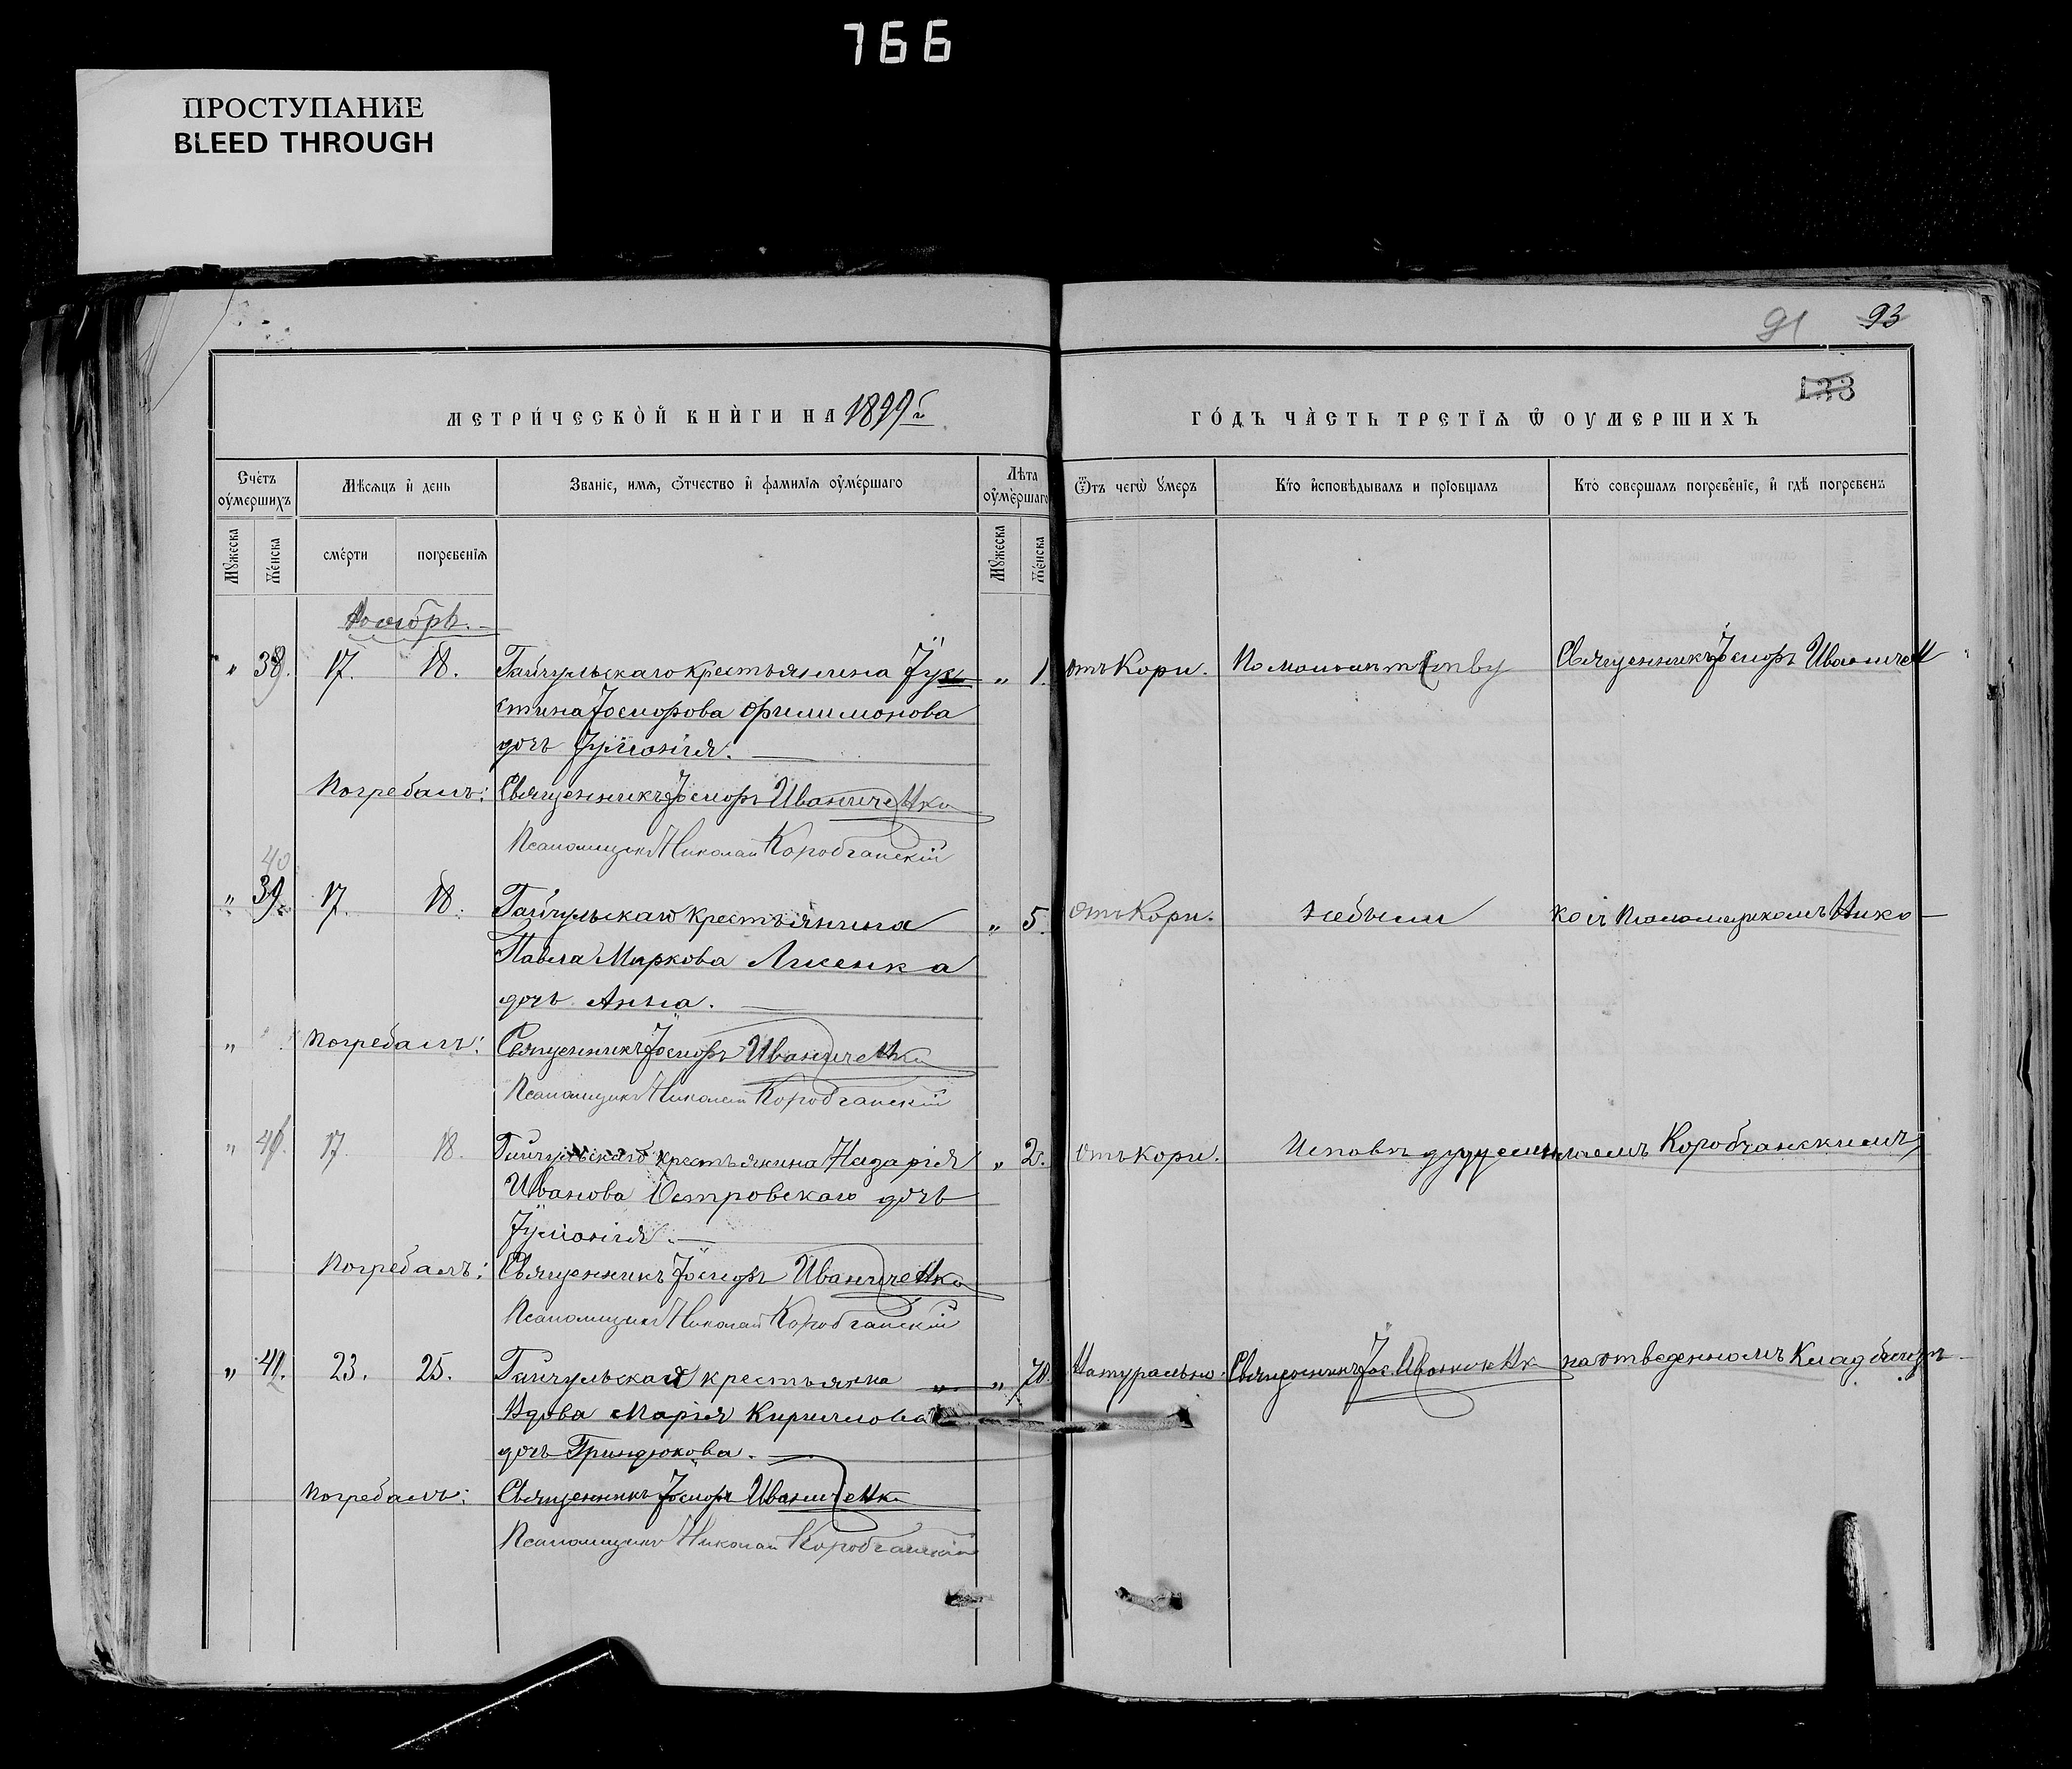 766
ПРОСТУПАНИЕ
BLEED THROUGH
91 93
123
МЕТРИЧЕСКОЙ КНИГИ НА 1899 г.
ГОДЪ ЧАСТЬ ТРЕТІѦ Ѿ ОУМЕРШИХЪ
Счетъ оумершихъ
Мѣсѧцъ и день
Званіе, имѧ, отчество и фамиліѧ оумершаго
Лѣта оумершаго
Ѿтъ чегѡ умеръ
Кто исповѣдывалъ и пріобщалъ
Кто совершалъ погребеніе, и гдѣ погребенъ
Мужеска
Женска
смерти
погребеніѧ
Мужеска
Женска
Ноябрь.
" 39. 17. 18. Гайчульскаго крестьянина Іу " 1. отъ Кори. По Священникъ Іосифъ Иваниченко
стина Іосифова Филимонова
дочь Іуліанія.
Погребалъ: Священникъ Іосифъ Иваниченко
Псаломщикъ Николай Коробчанскій
40
" 39. 17. 18. Гайчульскаго крестьянина " 5. отъ Кори. небыли съ Псаломщикомъ Нико
Павла Маркова Лисенка
дочь Анна.
" Погребалъ: Священникъ Іосифъ Иваниченко
Псаломщикъ Николай Коробчанскій
" 41. 17. 18. Гайчульскаго крестьянина Назарія " 2. отъ Кори. лаемъ Коробчанскимъ
Иванова Островскаго дочь
Іуліанія.
Погребалъ: Священникъ Іосифъ Иваниченко
Псаломщикъ Николай Коробчанскій
" 42. 23. 25. Гайчульская крестьянка " " 70. Натурально. Священникъ Іос. Иваниченк на отведенномъ Кладбищѣ
Вдова Марія Кириллова
дочь Гриндюкова.
Погребалъ: Священникъ Іосифъ Иваниченк
Псаломщикъ Николай Коробчанскій